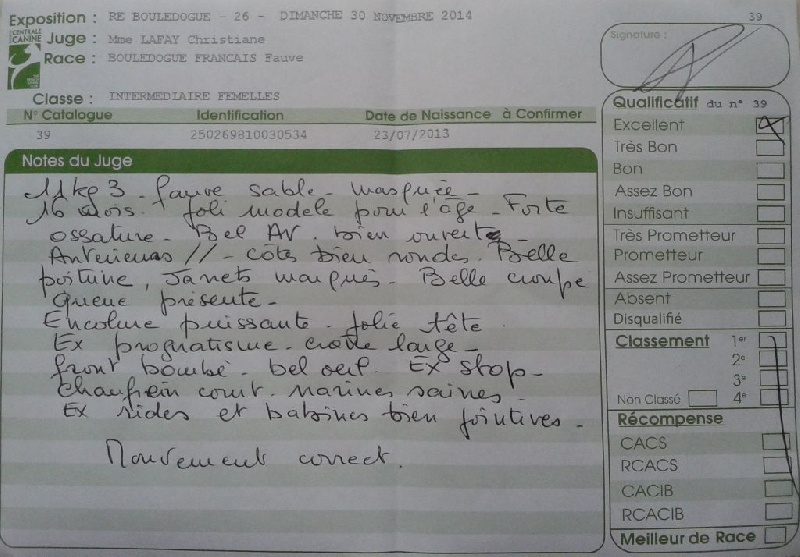 Exposition : RE BOULEDOGUE - 26 - DIMANCHE 30 NOVEMBRE 2014
39
CENTRALE CANINE
Juge : Mme LAFAY Christiane
Race : BOULEDOGUE FRANCAIS Fauve
Classe : INTERMEDIAIRE FEMELLES
N° Catalogue Identification Date de Naissance à Confirmer
39 250269810030534 23/07/2013
Notes du Juge
11kg3 - fauve sable - masquée -
16 mois. Joli modèle pour l'âge - Forte
ossature - Bel AV. bien ouverte -
Antérieurs // - côtes bien rondes. Belle
poitrine, Jarrets marqués - Belle croupe
queue présente -
Encolure puissante - jolie tête
Ex prognatisme - crâne large -
front bombé - bel oeil. Ex stop -
chanfrein court - narines saines -
Ex rides et babines bien jointives -
Mouvement correct.
Signature :
Qualificatif du n° 39
Excellent
Très Bon
Bon
Assez Bon
Insuffisant
Très Prometteur
Prometteur
Assez Prometteur
Absent
Disqualifié
Classement 1er
2e
3e
Non Classé 4e
Récompense
CACS
RCACS
CACIB
RCACIB
Meilleur de Race